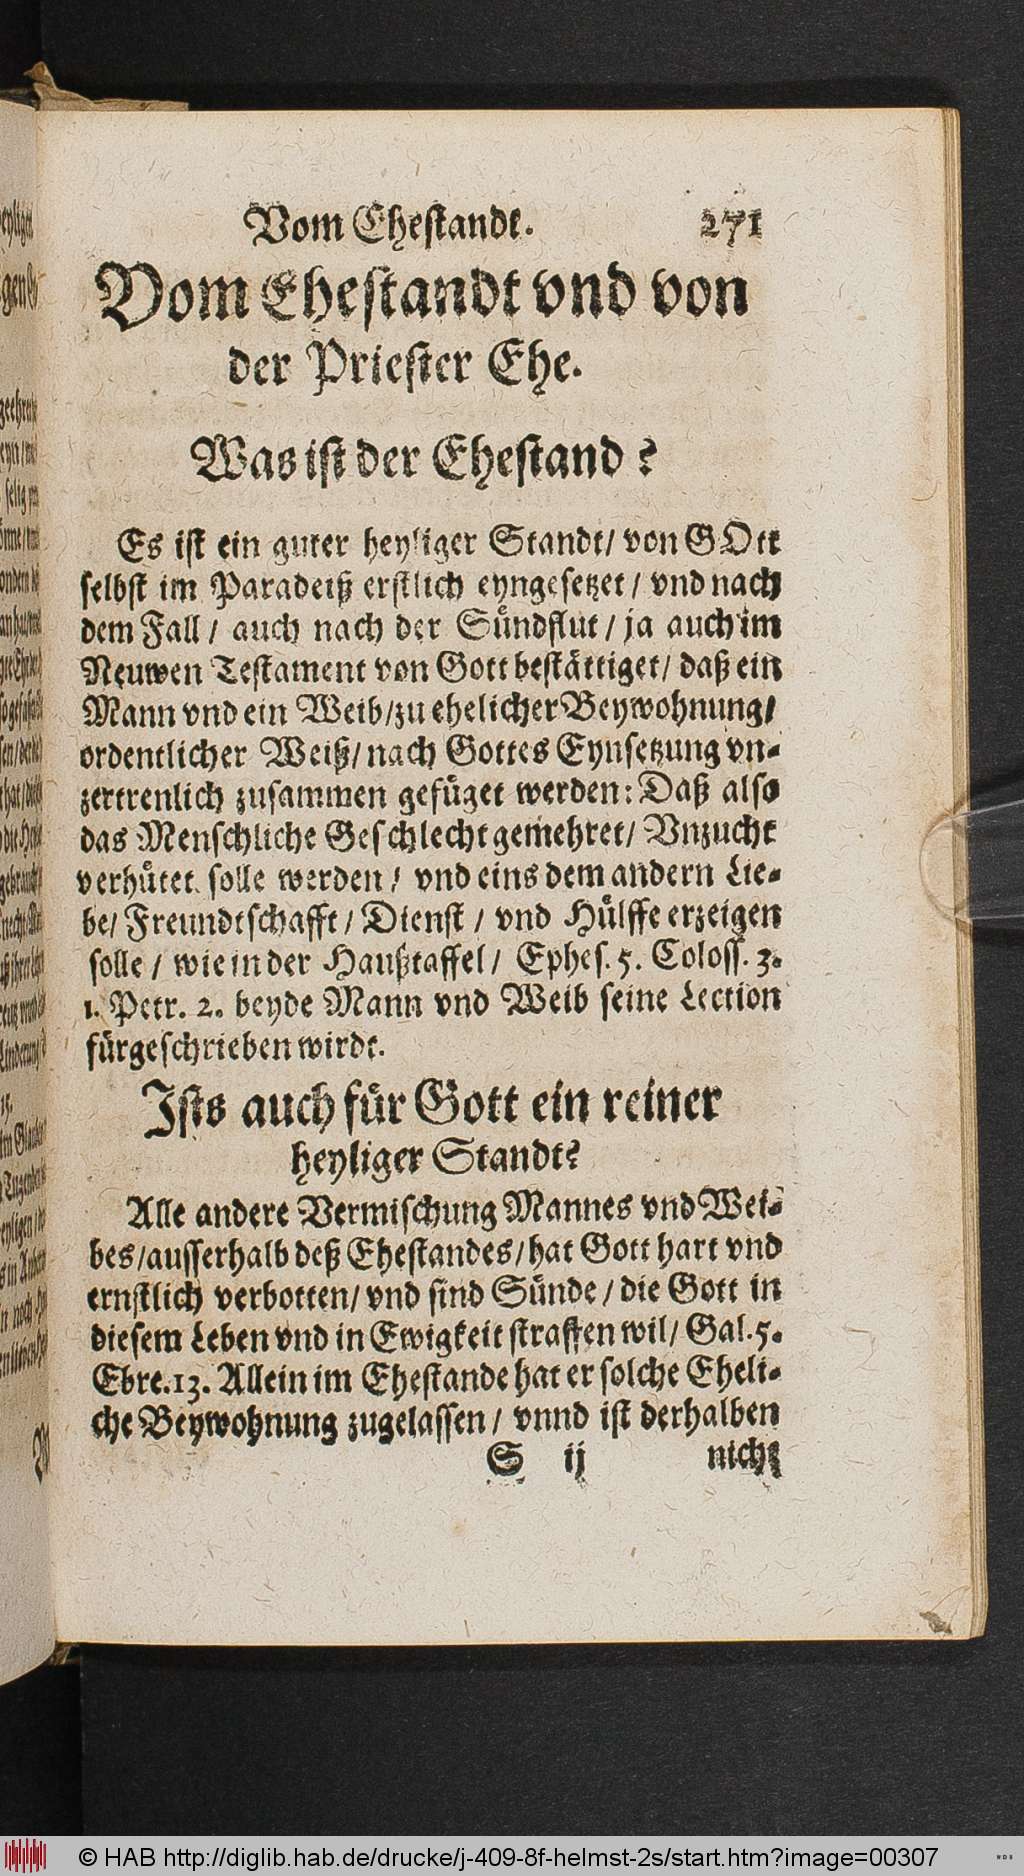 Vom Ehestandt. 271
Vom Ehestandt vnd von
der Priester Ehe.
Was ist der Ehestand?
Es ist ein guter heyliger Standt/ von GOtt
selbst im Paradeiß erstlich eyngesetzet/ vnd nach
dem Fall/ auch nach der Sündflut/ ja auch im
Neuwen Testament von Gott bestättiget/ daß ein
Mann vnd ein Weib/ zu ehelicher Beywohnung/
ordentlicher Weiß/ nach Gottes Eynsetzung vn-
zertrenlich zusammen gefüget werden: Daß also
das Menschliche Geschlecht gemehret/ Vnzucht
verhütet solle werden/ vnd eins dem andern Lie-
be/ Freundtschafft/ Dienst/ vnd Hülffe erzeigen
solle/ wie in der Haußtaffel/ Ephes. 5. Coloss. 3.
1. Petr. 2. beyde Mann vnd Weib seine Lection
fürgeschrieben wirdt.
Ists auch für Gott ein reiner
heyliger Standt?
Alle andere Vermischung Mannes vnd Wei-
bes/ ausserhalb deß Ehestandes/ hat Gott hart vnd
ernstlich verbotten/ vnd sind Sünde/ die Gott in
diesem Leben vnd in Ewigkeit straffen wil/ Gal. 5.
Ebre. 13. Allein im Ehestande hat er solche Eheli-
che Beywohnung zugelassen/ vnnd ist derhalben
S ij nicht
© HAB http://diglib.hab.de/drucke/j-409-8f-helmst-2s/start.htm?image=00307